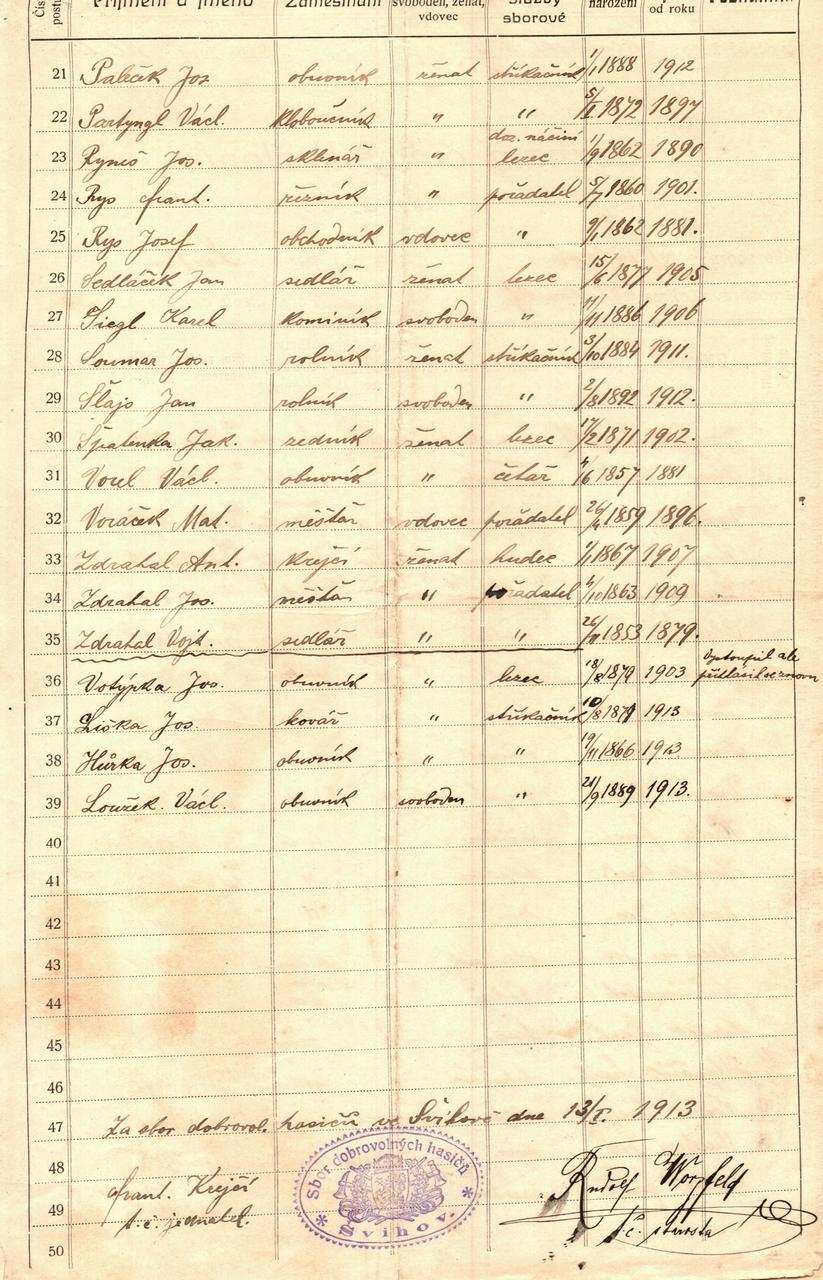 Příjmení a jméno Zaměstnání svoboden, ženat, vdovec služby sborové narození od roku
21 Paleček Jos obuvník ženat stříkačník 1/1 1888 1912
22 Partyngl Václ. kloboučník " " 5/I 1872 1897
doz. náčiní
23 Ryneš Jos. sklenář " lezec 1/9 1862 1890
24 Rys frant. řezník " pořadatel 5/7 1860 1901.
25 Rys Josef obchodník vdovec " 9/1 1862 1881.
26 Sedláček Jan sedlář ženat lezec 15/6 1877 1905
27 Siegl Karel kominík svoboden " 11/11 1886 1906
28 Soumar Jos. rolník ženat stříkačník 3/10 1884 1911.
29 Šlajs Jan rolník svoboden " 2/8 1892 1912.
30 Špalenka Jak. zedník ženat lezec 17/2 1871 1902.
31 Vorel Václ. obuvník " četař 4/6 1857 1881
32 Voráček Mat. měšťan vdovec pořadatel 26/4 1859 1896.
33 Zdrahal Ant. krejčí ženat hudec 1/1 1867 1907
34 Zdrahal Jos. měšťan " pořadatel 4/10 1863 1909
35 Zdrahal Vojt. sedlář " " 26/11 1853 1879.
Vystoupil ale
36 Votýpka Jos. obuvník " lezec 18/8 1879 1903 přihlásil se znovu
37 Liška Jos. kovář " stříkačník 10/8 1879 1913
38 Hůrka Jos. obuvník " " 19/11 1866 1913
39 Loužek Václ. obuvník svoboden " 21/9 1889 1913.
40
41
42
43
44
45
46
47 Za sbor dobrovol. hasičů ve Švihově dne 13/I. 1913
48
Sbor dobrovolných hasičů
* Švihov. *
frant. Krejčí Rudolf
49 t.č. jednatel. t.č. starosta
50